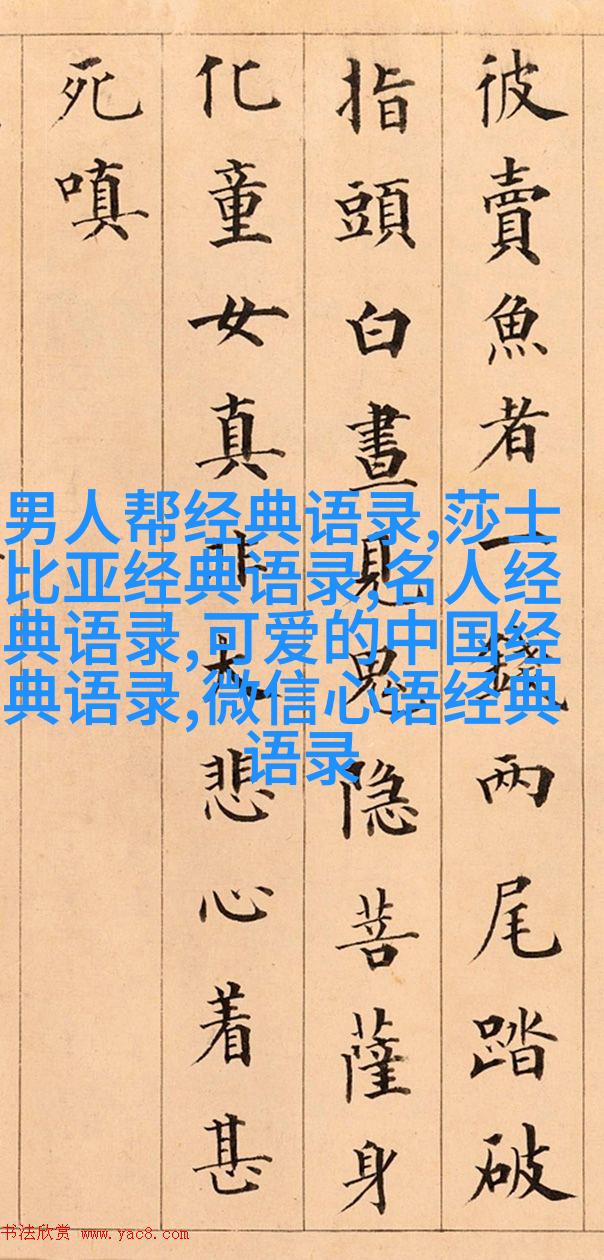 彼賣魚者一錢两尾踏破
指頭白晝見鬼隐菩薩身
化童女真非大悲心着甚
死嗔
男人帮经典语录,莎士
比亚经典语录,名人经
典语录,可爱的中国经
典语录,微信心语经典
语录
书法欣赏 www.yac8.com